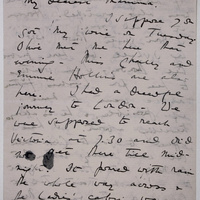 My dearest Mamma.
I suppose you
got my wire on Tuesday
met me here that
evening. Charley and
Minnie Hollins are also
here. I had a dreadful
journey to London. We
were supposed to reach
Victoria at 7.30 and did
not get here till mid-
night. It poured with rain
the whole way across &
the Ladies cabin was